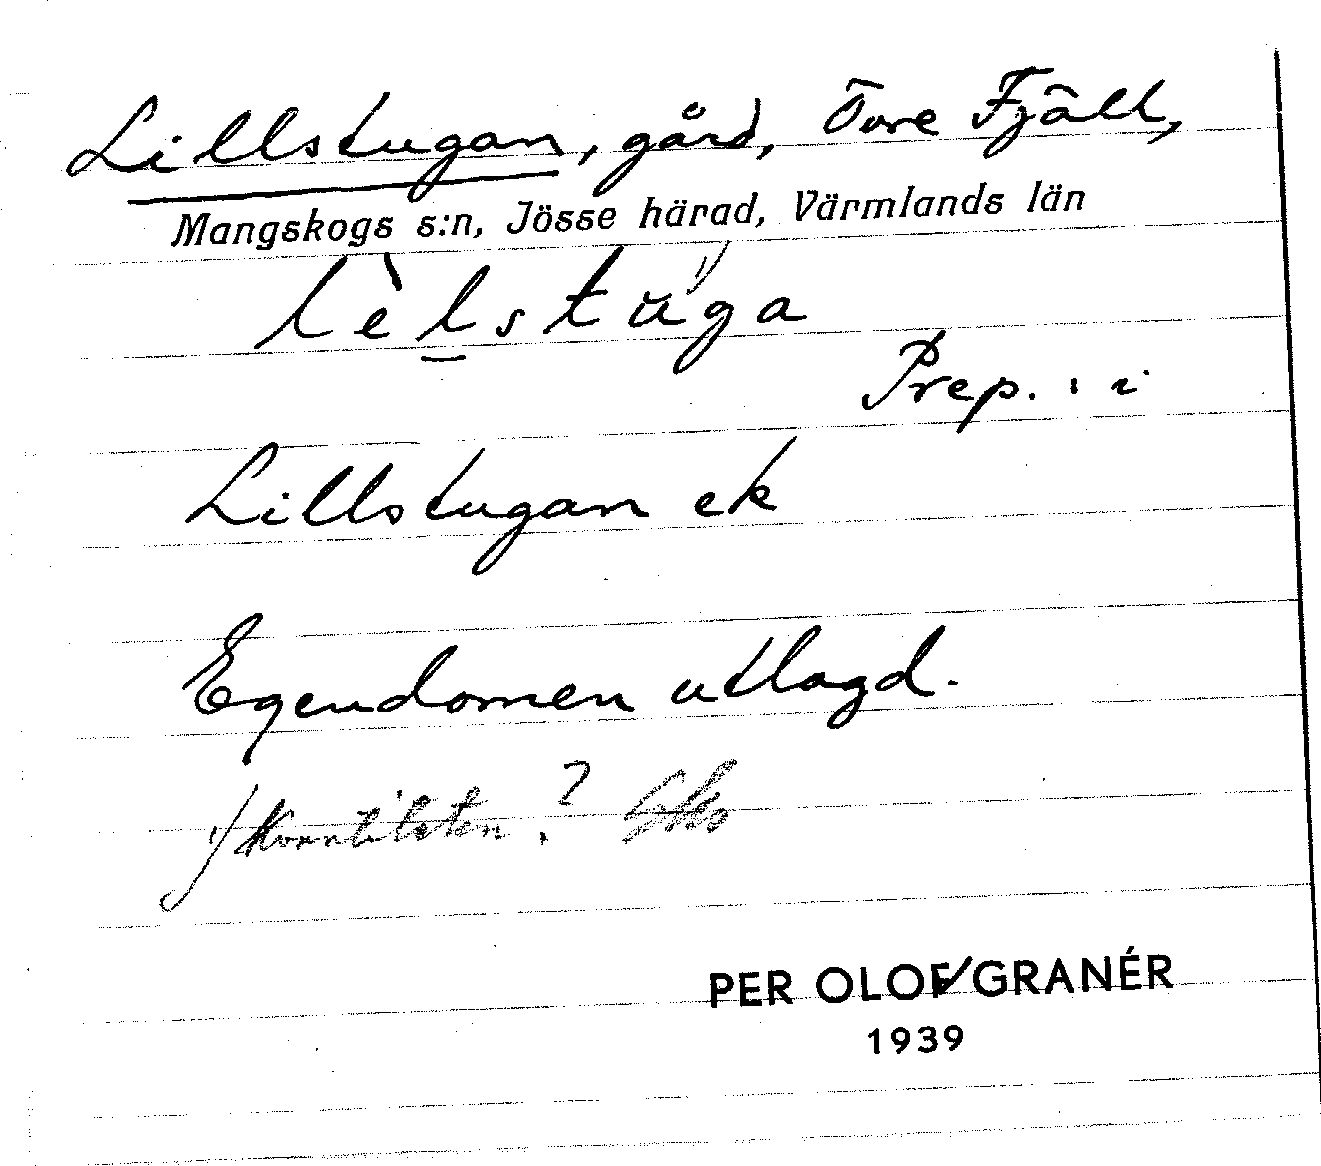 Lillstugan, gård, Övre Fjäll,
Mangskogs s:n, Jösse härad, Värmlands län
lèlstuga 1)
Prep. : i
Lillstugan ek
Egendomen utlagd.
1) Kvantiteten?
PER OLOF GRANÉR
1939